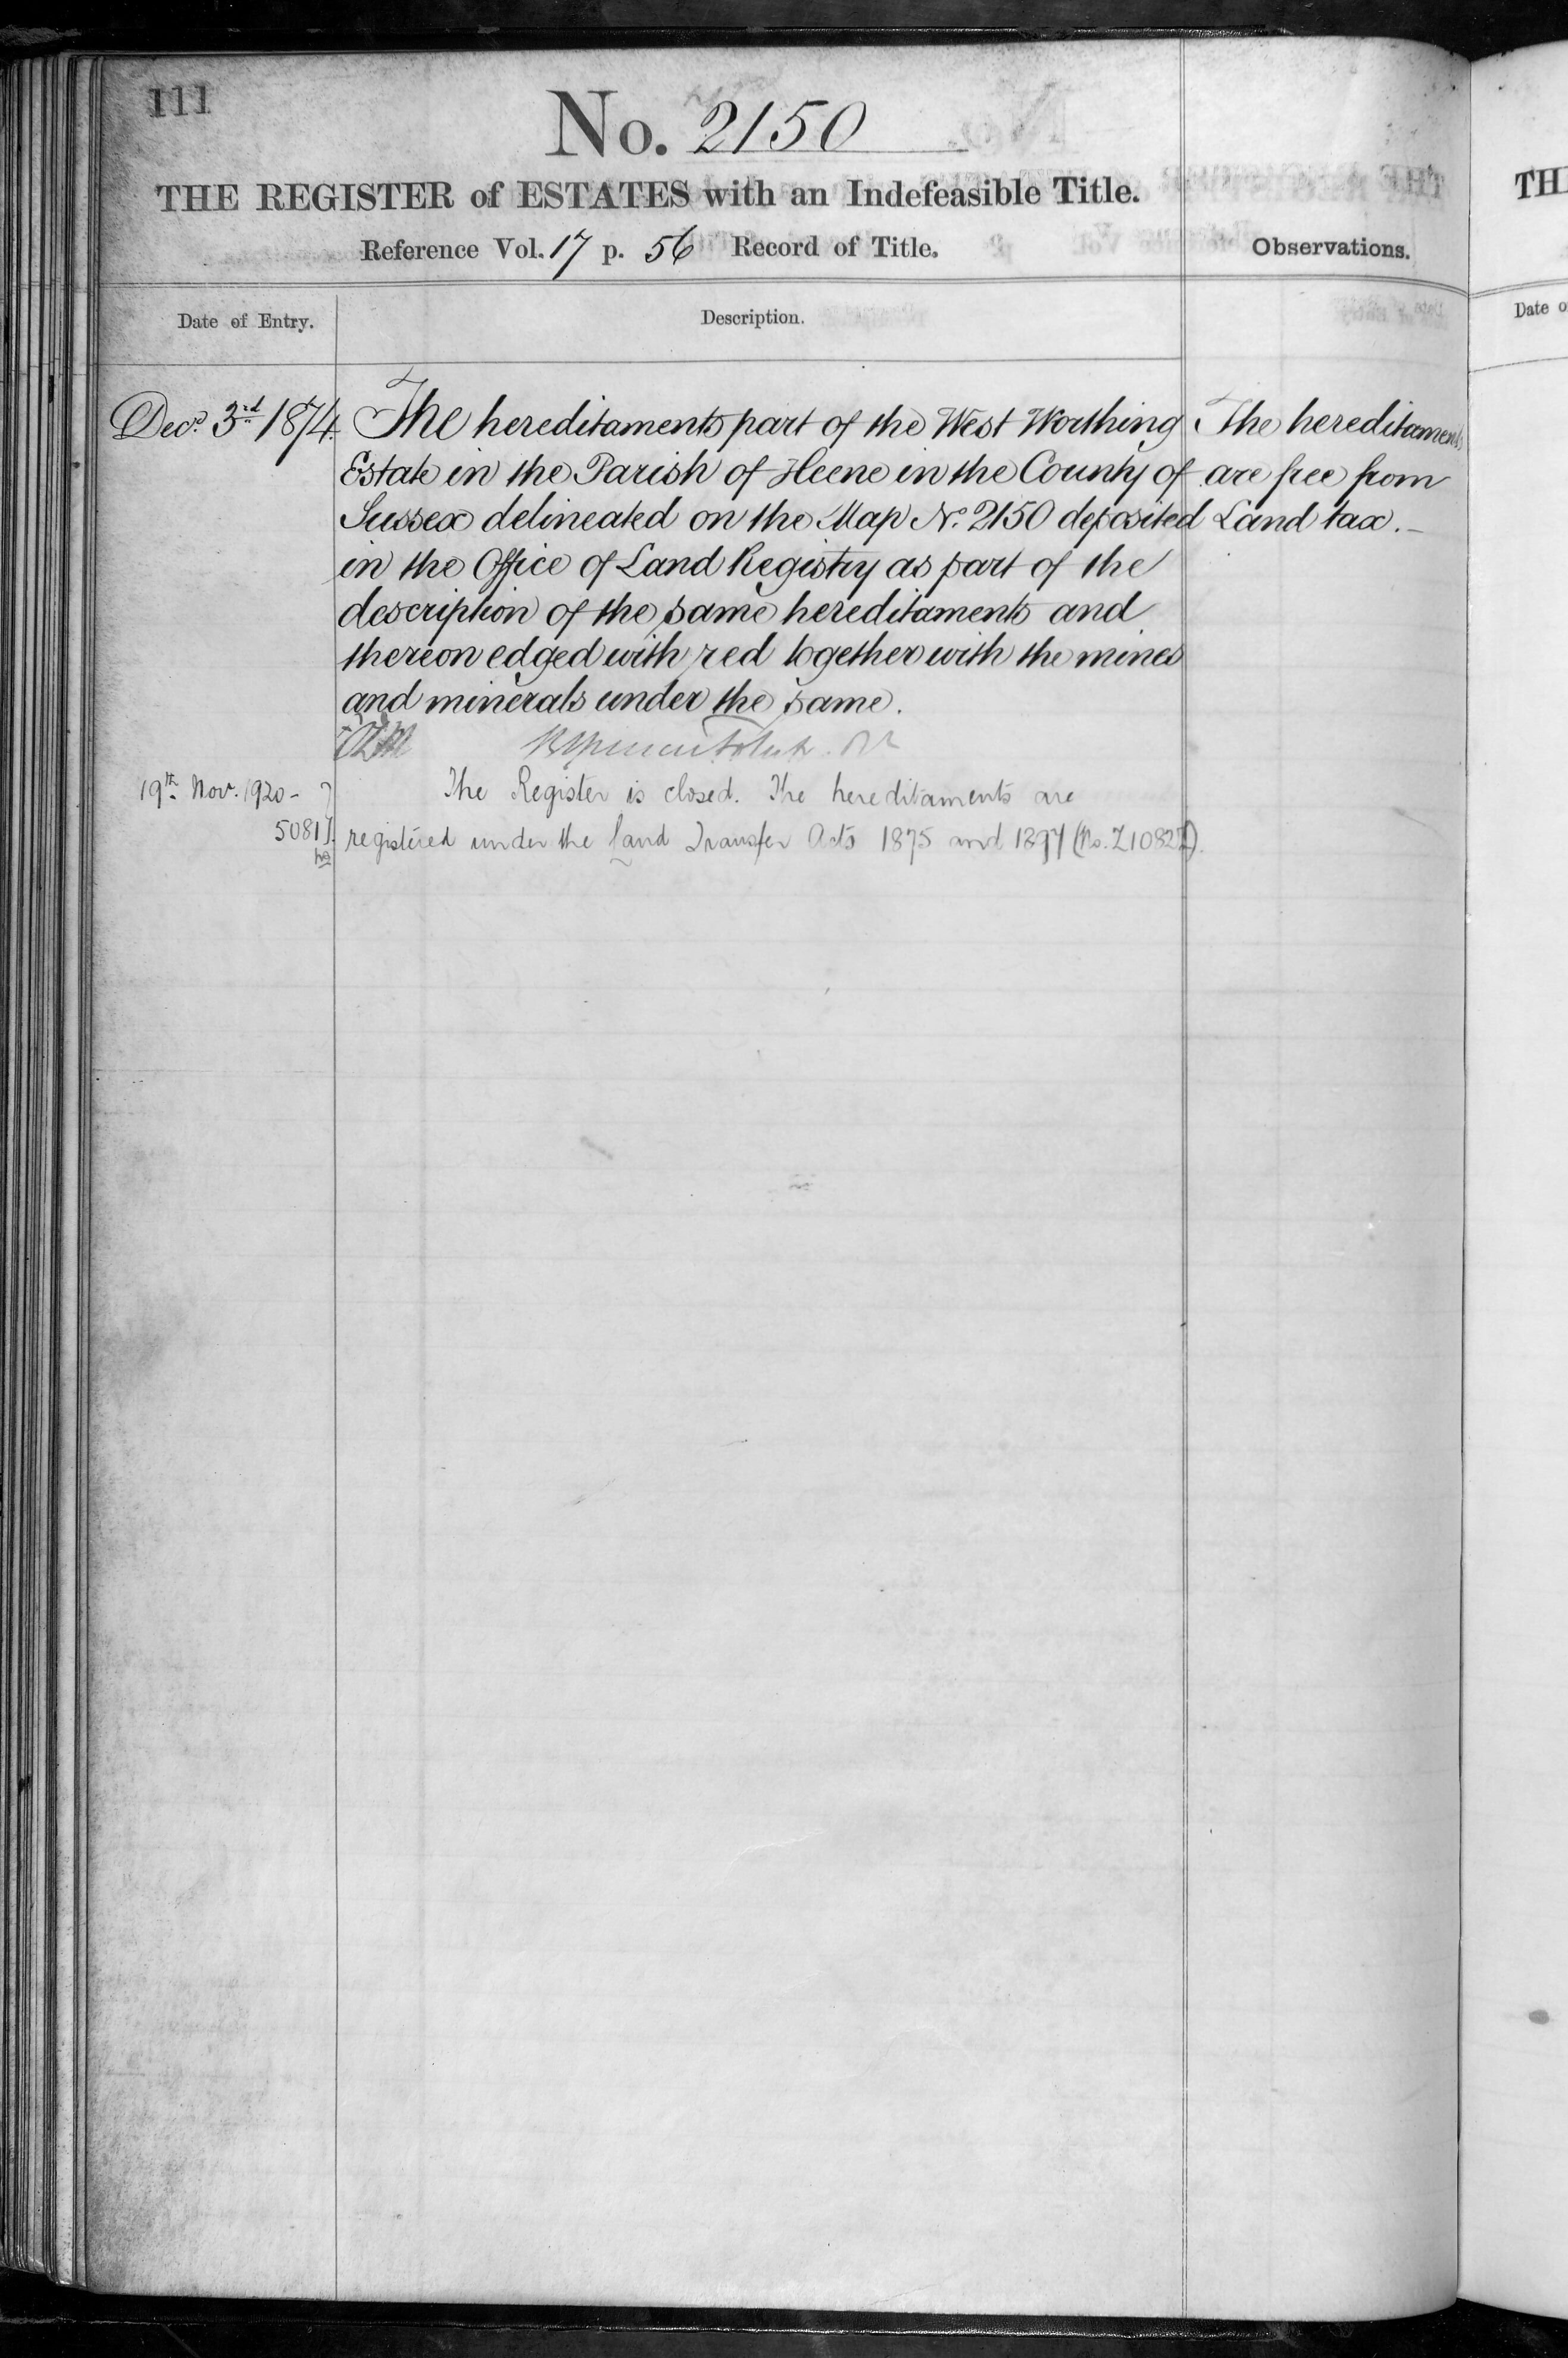 111
No. 2150
THE REGISTER of ESTATES with an Indefeasible Title.
Reference Vol. 17 p. 56 Record of Title.
Observations.
Date of Entry.
Description.
Decr. 3rd 1874.
The hereditaments part of the West Worthing
Estate in the Parish of Heene in the County of
Sussex delineated on the Map No. 2150 deposited
in the Office of Land Registry as part of the
description of the same hereditaments and
thereon edged with red together with the mines
and minerals under the same.
The hereditaments
are free from
Land tax.-
19th Nov. 1920-
5081
The Register is closed. The hereditaments are
registered under the Land Transfer Acts 1875 and 1897 (No.
TH
Date o